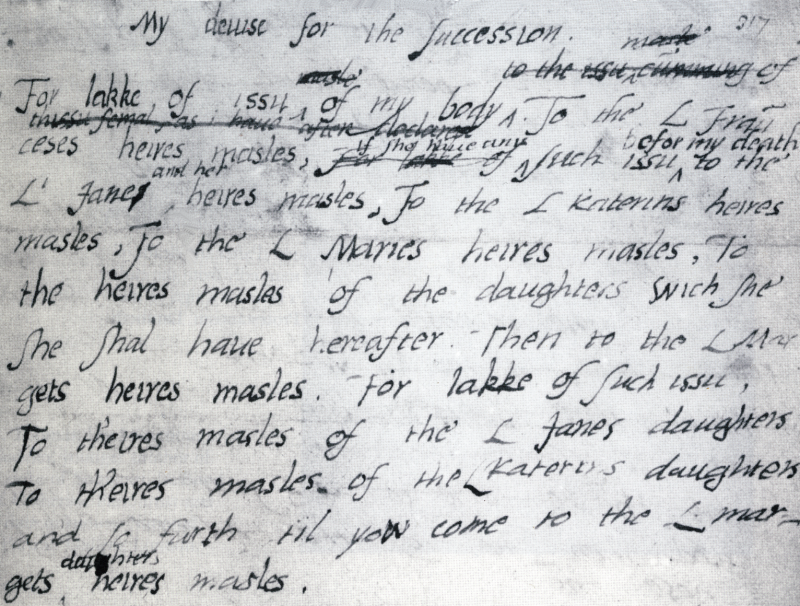 My deuise for the succession.
317
masle
masle
to the issu cumming of
For lakke of issu of my body. To the L Frau
thissu femal, as i haue after declared
if she haue any
before my death
ceses heires masles, For lakke of such issu, to the
and her
L' Janes heires masles, To the L Katerins heires
masles, To the L Maries heires masles, To
the heires masles of the daughters wich she
she shal haue hereafter. Then to the L Mar
gets heires masles. For lakke of such issu,
To theires masles of the L Janes daughters
To theires masles of the L Katerins daughters
and so furth til yow come to the L mar-
daughters
gets heires masles.